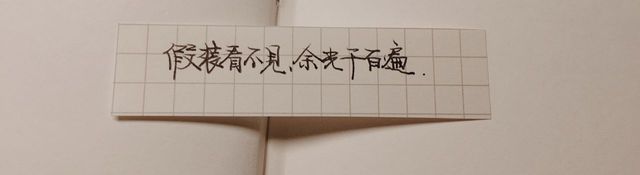 假装看不見、余光千百遍.